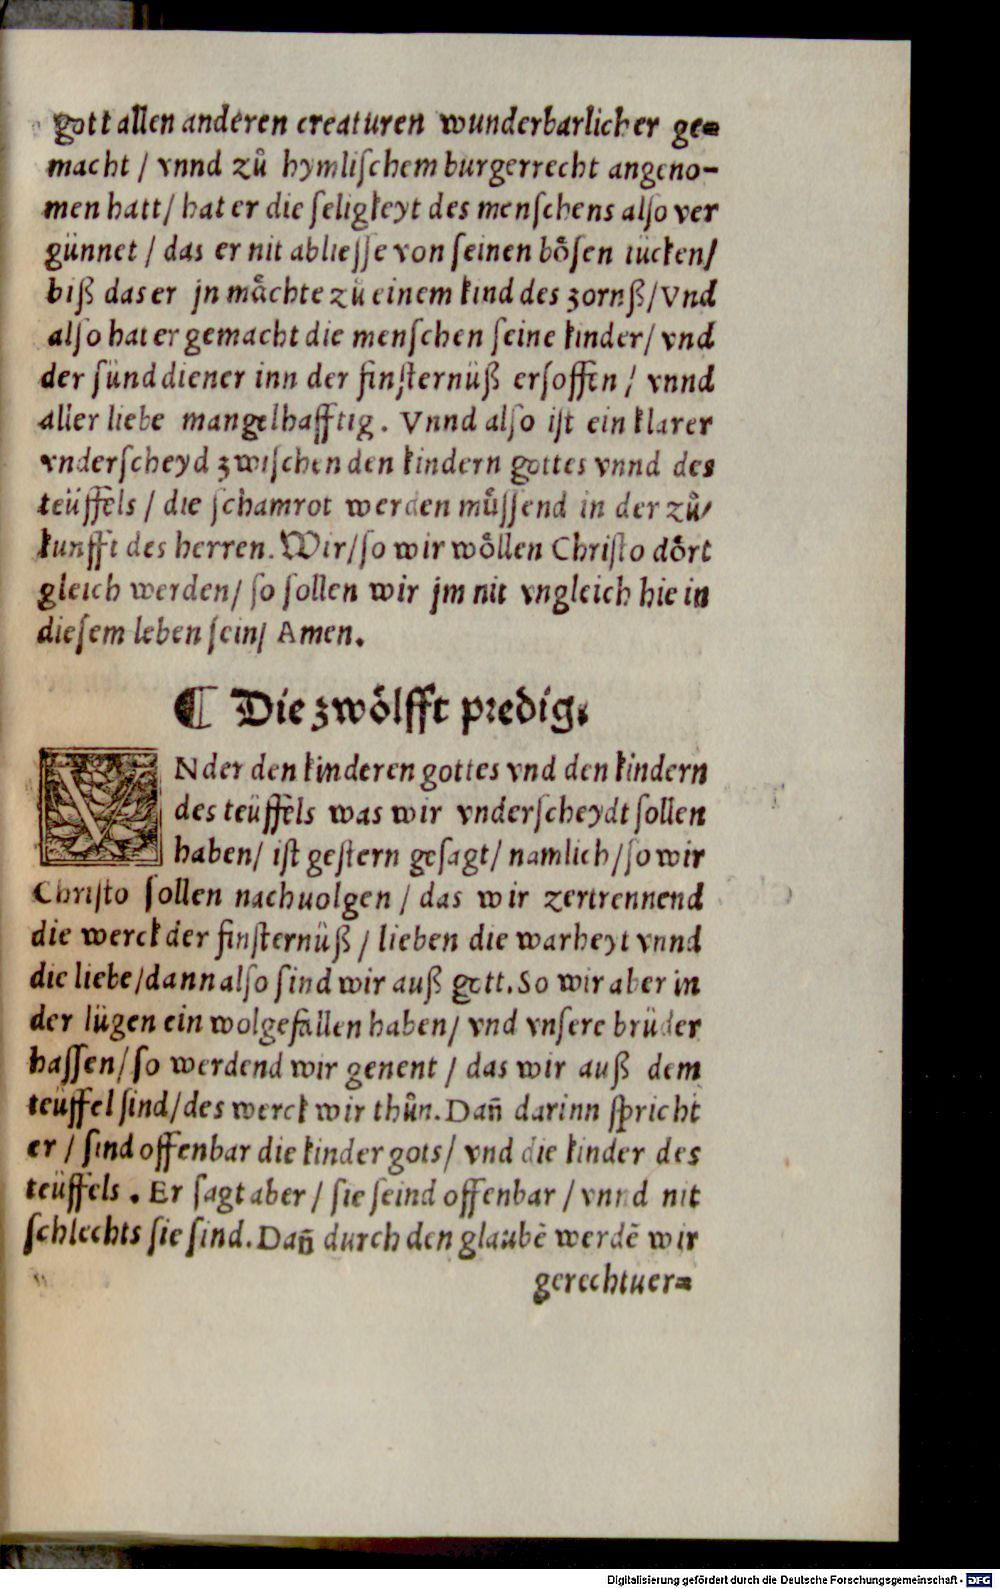 gott allen anderen creaturen wunderbarlicher ge⸗
macht / vnnd zů hymliſchem burgerrecht angeno-
men hatt / hat er die ſeligkeyt des menſchens alſo ver
günnet / das er nit ablieſſe von ſeinen boͤſen tücken /
biß das er jn maͤchte zů einem kind des zornß / Vnd
alſo hat er gemacht die menſchen ſeine kinder / vnd
der ſünd diener inn der finſternüß erſoffen / vnnd
aller liebe mangelhafftig. Vnnd alſo iſt ein klarer
vnderſcheyd zwiſchen den kindern gottes vnnd des
teüffels / die ſchamrot werden muͤſſend in der zů⸗
kunfft des herren. Wir / ſo wir woͤllen Chriſto doͤrt
gleich werden / ſo ſollen wir jm nit vngleich hie in
dieſem leben ſein / Amen.
¶ Die zwoͤlfft predig.
VNder den kinderen gottes vnd den kindern
des teüffels was wir vnderſcheydt ſollen
haben / iſt geſtern geſagt / namlich / ſo wir
Chriſto ſollen nachuolgen / das wir zertrennend
die werck der finſternüß / lieben die warheyt vnnd
die liebe / dann alſo ſind wir auß gott. So wir aber in
der lügen ein wolgefallen haben / vnd vnſere brüder
haſſen / ſo werdend wir genent / das wir auß dem
teüffel ſind / des werck wir thůn. Dañ darinn ſpricht
er / ſind offenbar die kinder gots / vnd die kinder des
teüffels. Er ſagt aber / ſie ſeind offenbar / vnnd nit
ſchlechts ſie ſind. Dañ durch den glaubē werdē wir
gerechtuer⸗
Digitalisierung gefördert durch die Deutsche Forschungsgemeinschaft - DFG